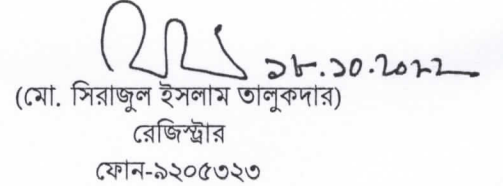 ১৮.১০.২০২২
(মো. সিরাজুল ইসলাম তালুকদার)
রেজিস্ট্রার
ফোন-৯২০৫৩২৩